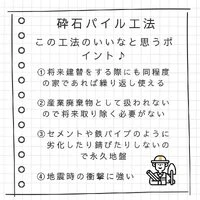 砕石パイル工法
この工法のいいなと思うポ
イント♪
①将来建替をする際にも同程度
の家であれば繰り返し使える
②産業廃棄物として扱われない
ので将来取り除く必要がない
③セメントや鉄パイプのように
劣化したり錆びたりしないの
で永久地盤
④地震時の衝撃に強い